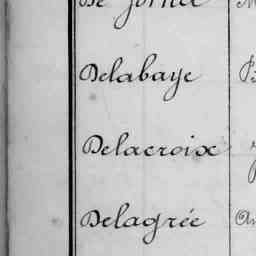 Delabaye
Delacroix
Delagrée